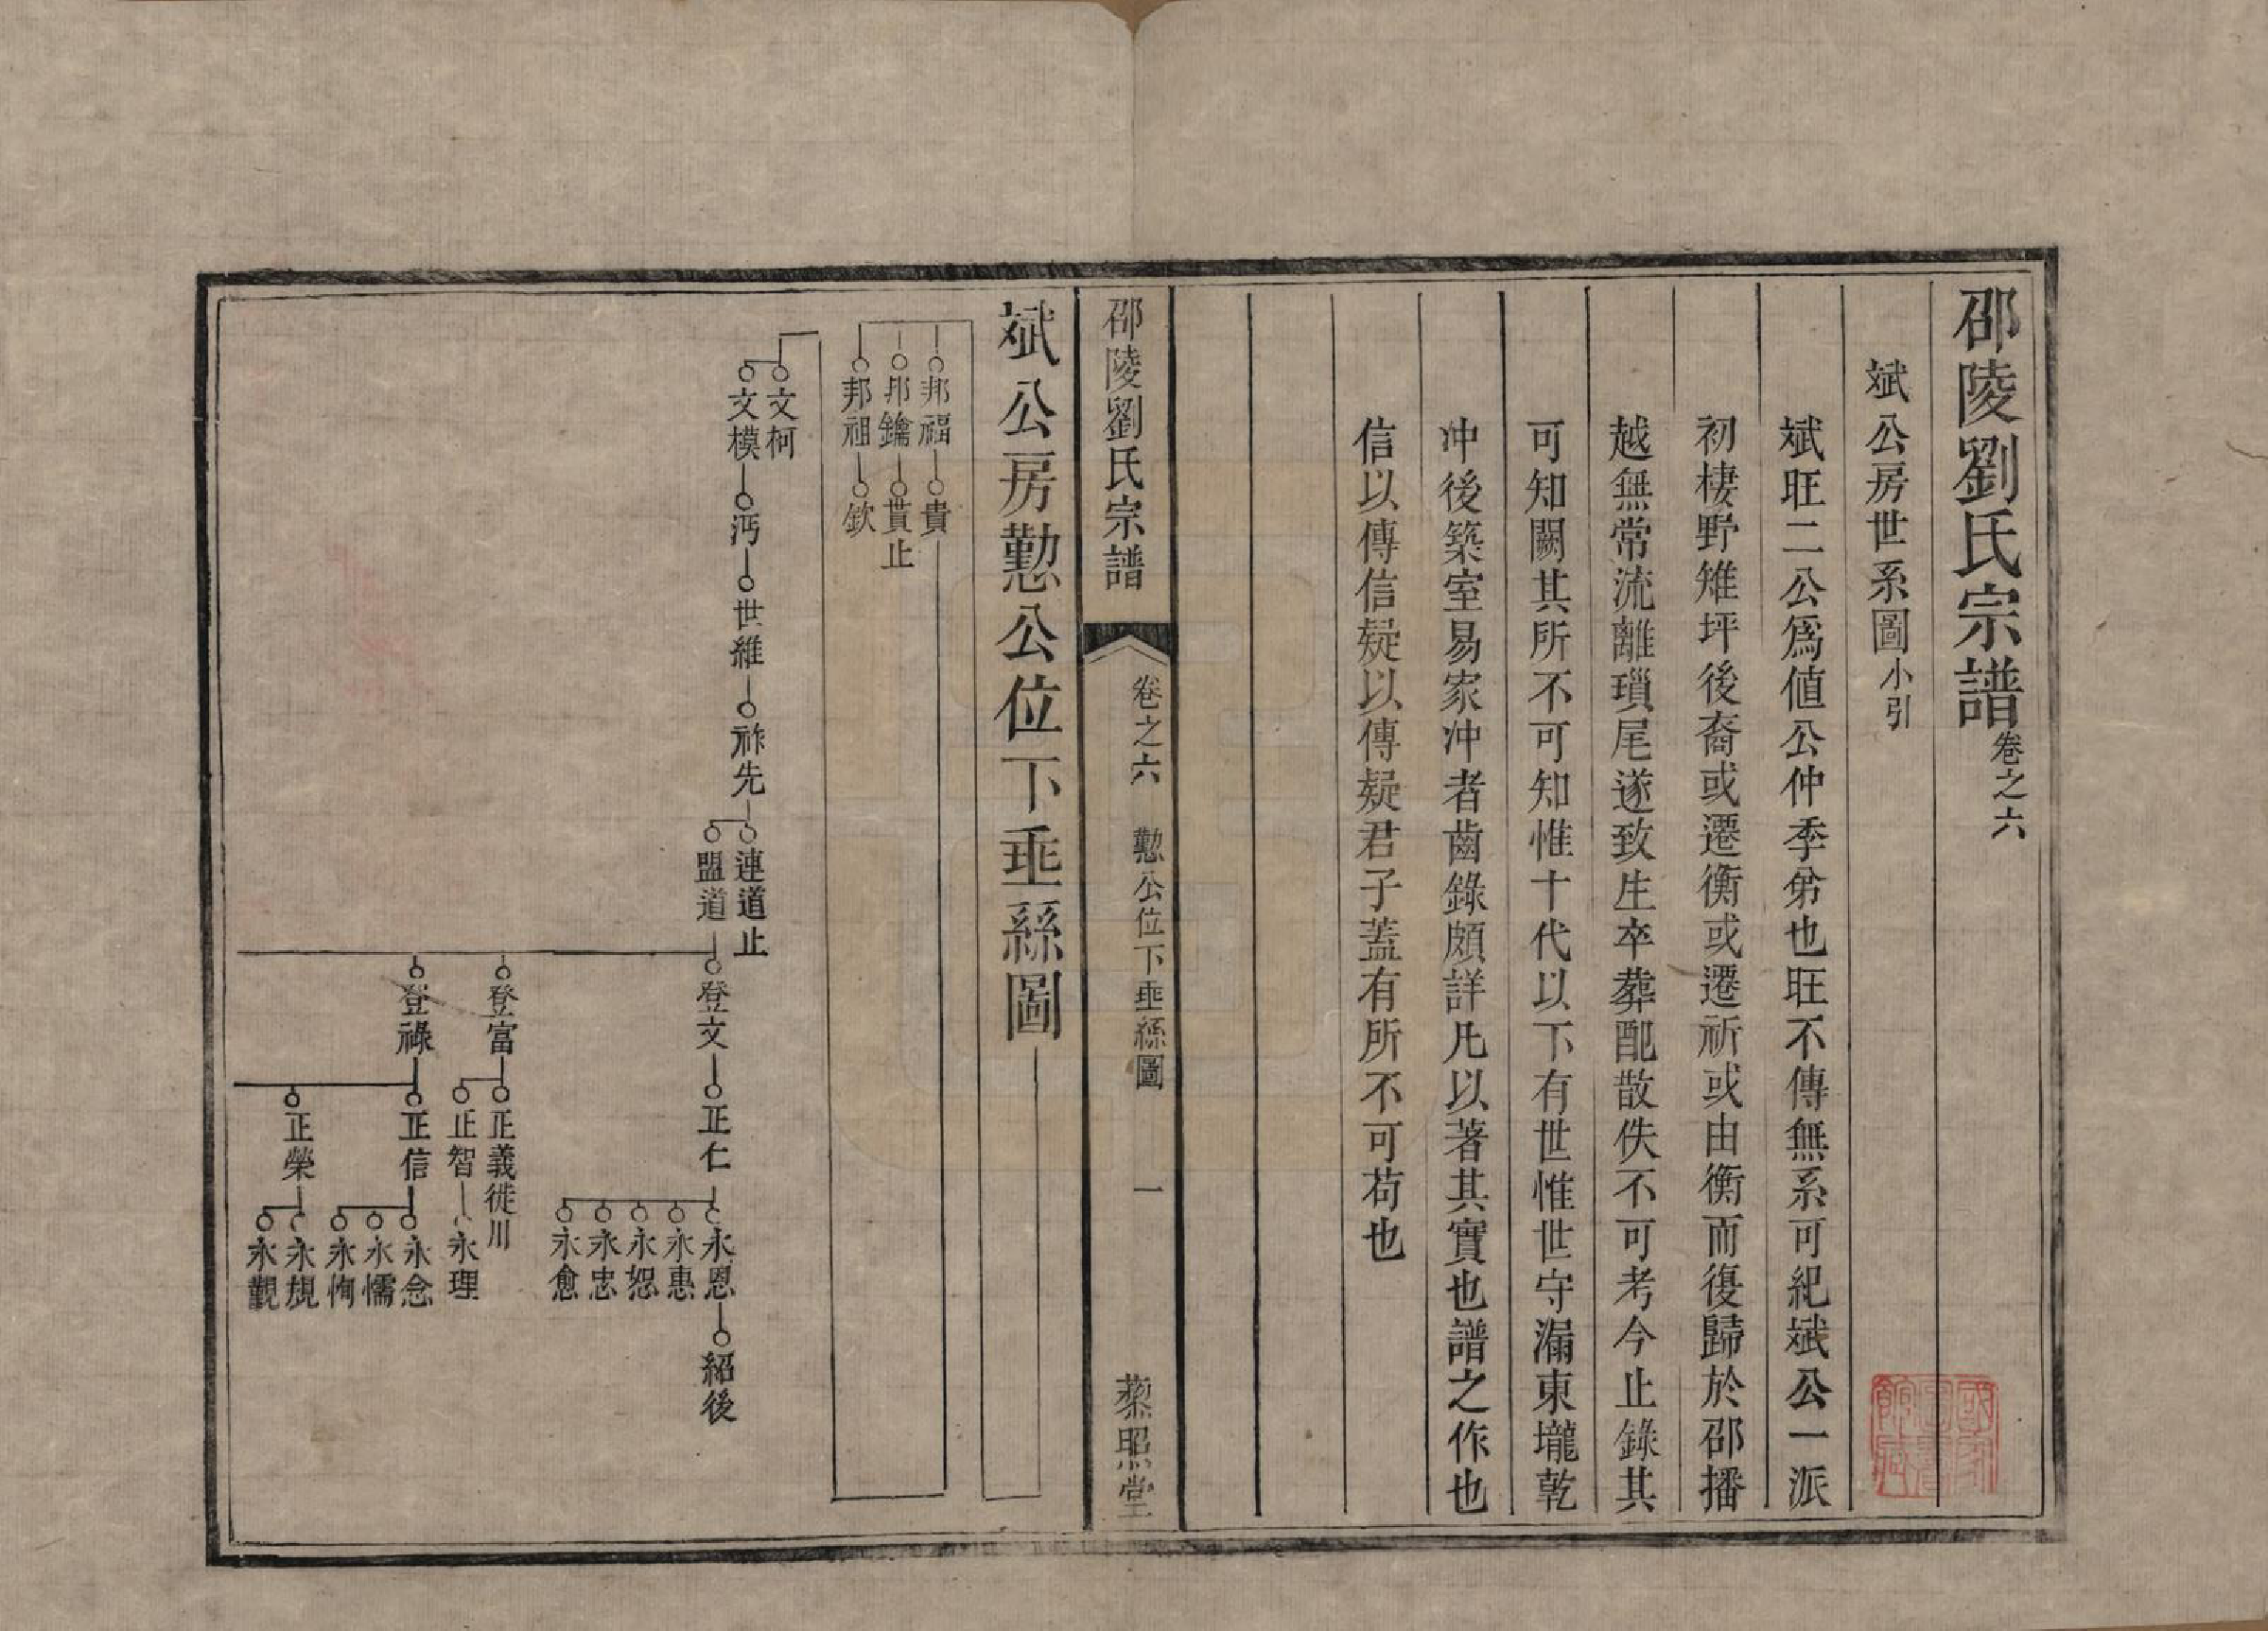 邵陵劉氏宗譜卷之六
斌公房世系圖小引
斌旺二公爲値公仲季弟也旺不傳無系可紀斌公一派
初棲野雉坪後裔或遷衡或遷祈或由衡而復歸於邵播
越無常流離瑣尾遂致生卒葬配散佚不可考今止錄其
可知闕其所不可知惟十代以下有世惟世守漏東壠乾
冲後築室易家冲者齒錄頗詳凡以著其實也譜之作也
信以傳信疑以傳疑君子蓋有所不可苟也
邵陵劉氏宗譜
卷之六
懃公位下垂絲圖
一
藜照堂
斌公房懃公位下垂絲圖
邦福
貴
邦鑰
貰止
邦祖
欽
文柯
文模
沔
世維
祚先
連道止
盟道
登文
正仁
永恩
紹後
永惠
永恕
永忠
永愈
登富
正義徙川
正智
永理
登祿
正信
永念
永懦
永恂
正榮
永規
永觀